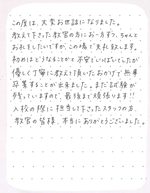 この度は、大変お世話になりました。
教えて下さった教官の方にお一方ずつ、ちゃんと
お礼をしたいですが、この場で失礼致します。
初めはどうなることかと不安でいっぱいでしたが
優しく丁寧に教えて頂いたおかげで無事
卒業することが出来ました。まだ試験が
残っていますので、最後まで頑張ります!!
入校の際に担当して下さったスタッフの方、
教官の皆様、本当にありがとうございました。